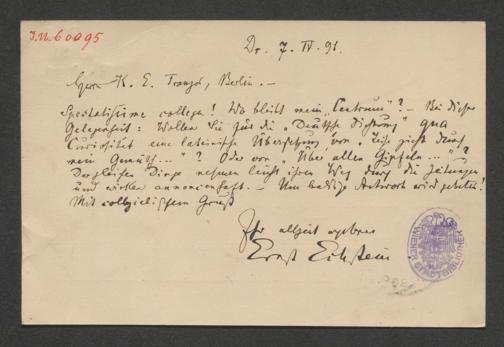 J.N. 60095
Dr. 7. IV. 91.
Herrn K. E. Franzos, Berlin. –
Spectatissime collega! Wo bleibt mein „Centrum"? – Bei dieser
Gelegenheit: Wollen Sie für die „Deutsche Dichtung" qua
Curiosität eine lateinische Übersetzung von „Leise zieht durch
mein Gemüth..."? Oder von „Über allen Gipfeln..."?
Dergleichen Dinge nehmen leicht ihren Weg durch die Zeitungen
und wirken annoncenhaft. – Um baldige Antwort wird gebeten!
Mit collegialischem Gruß
Ihr allzeit ergebener
Ernst Eckstein
WIENER STADTBIBLIOTHEK